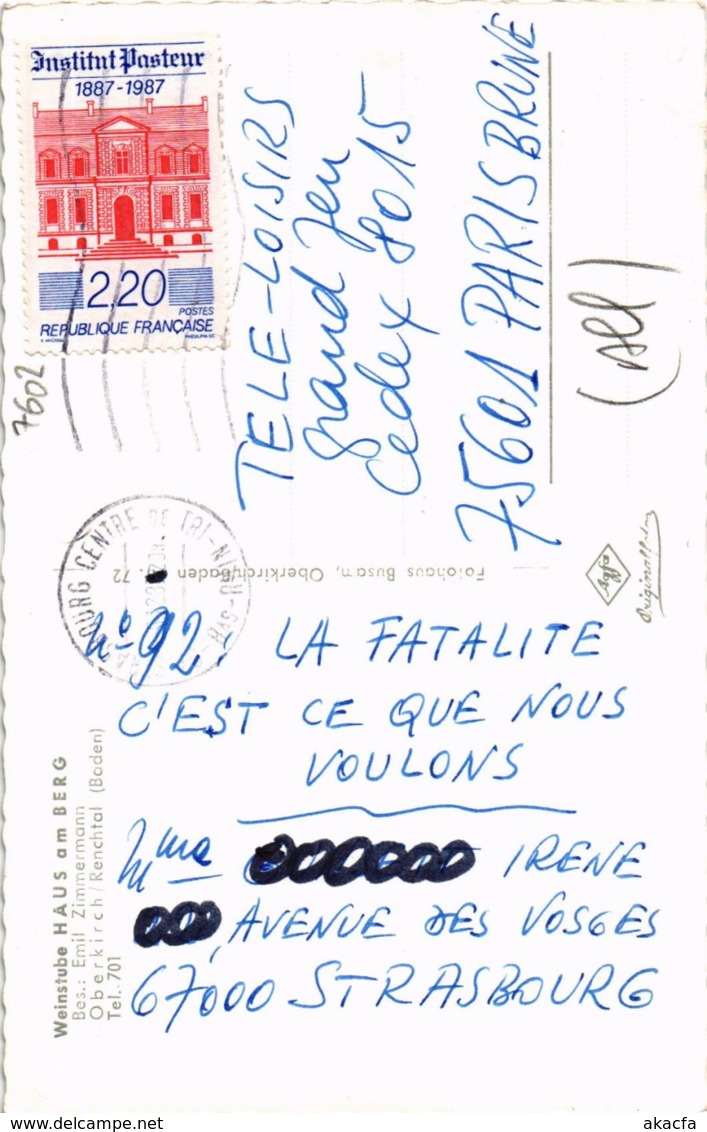 Institut Pasteur
1887-1987
2,20
POSTES
REPUBLIQUE FRANÇAISE
7602
TELE-LOISIRS
Grand Jeu
Cedex 8015
75601 PARIS BRUNE
(All)
CENTRE DE TRI
Fotohaus Busam, Oberkirch/Baden 72
Agfa
N° 92: LA FATALITE
C'EST CE QUE NOUS
VOULONS
Mme IRENE
, AVENUE DES VOSGES
67000 STRASBOURG
Weinstube HAUS am BERG
Bes.: Emil Zimmermann
Oberkirch/Renchtal (Baden)
Tel. 701
akacfa